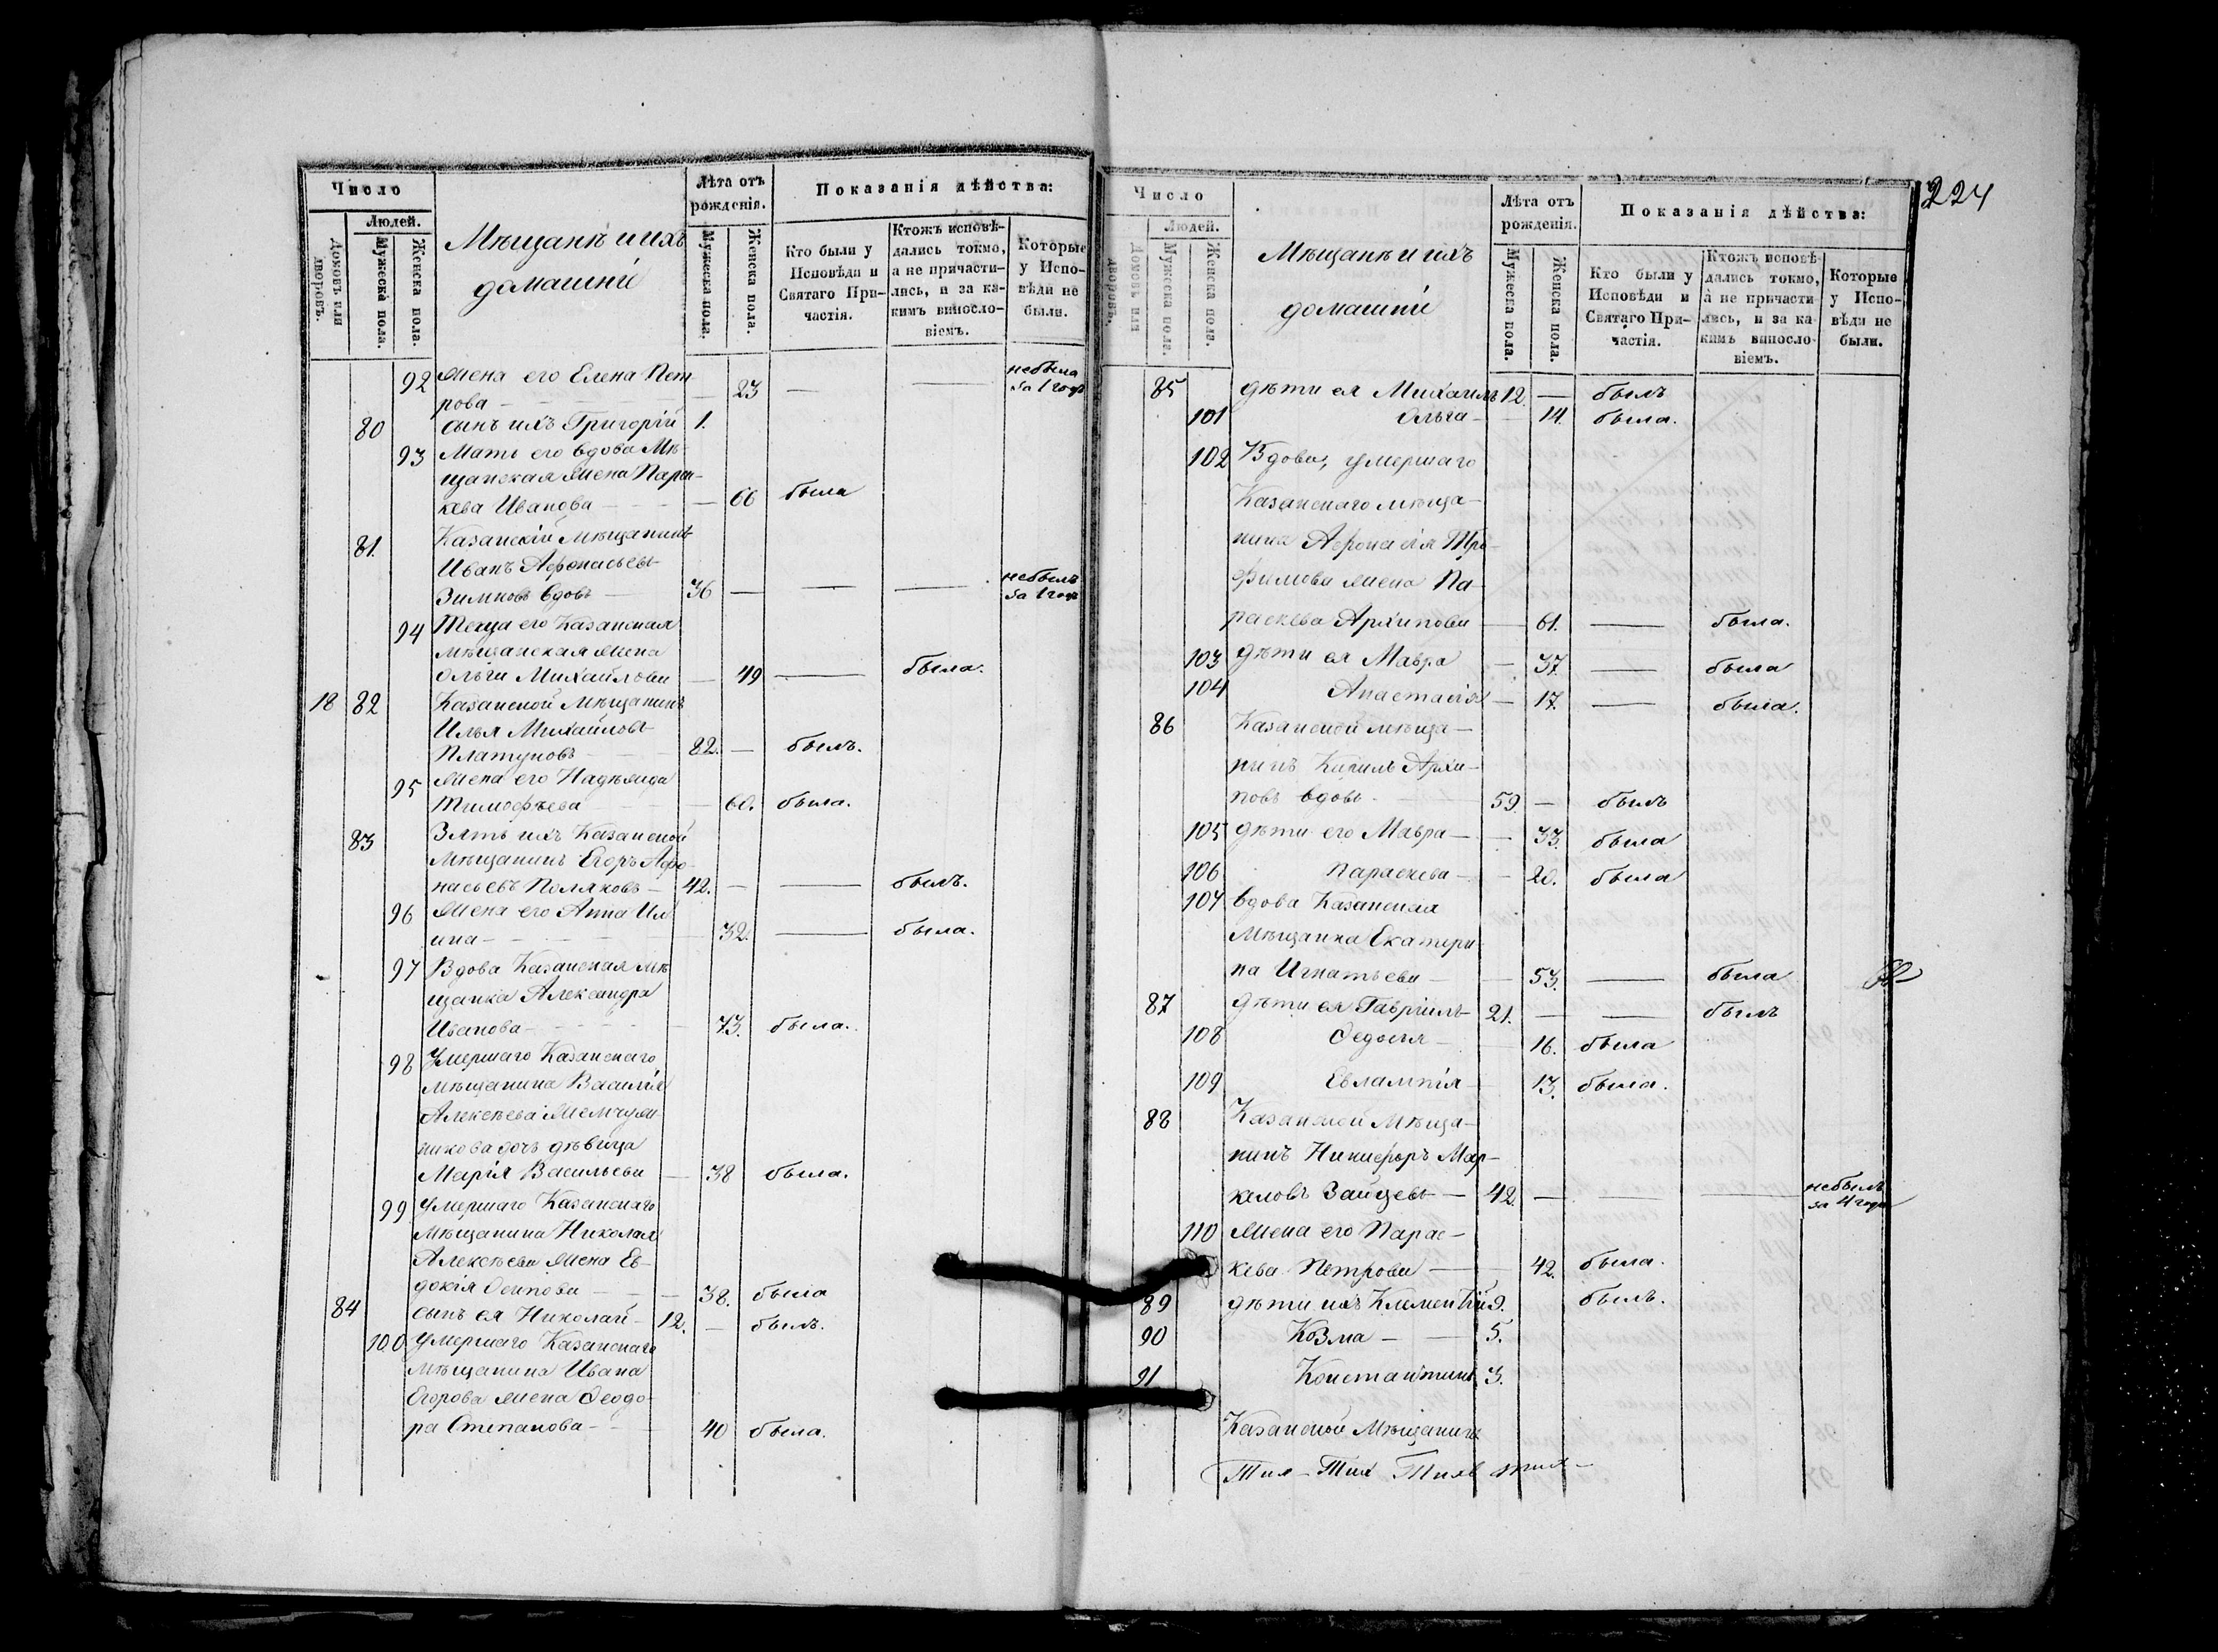 Число
Людей.
Домовъ или дворовъ.
Мужеска пола.
Женска пола.
Мѣщанѣ и ихъ
домашнiи
Лѣта отъ рожденія.
Мужеска пола.
Женска пола.
Показанія дѣйства:
Кто были у Исповѣди и Святаго Причастія.
Ктожъ исповѣ-
дались токмо,
а не причасти-
лись, и за ка-
кимъ винословіемъ.
Которые
у Испо-
вѣди не
были.
92 жена его Елена Пет- небыла
рова — 23 — — за 1 годъ
80 сынъ ихъ Григорій 1.
93 Мать его вдова Мѣ-
щанская жена Парас-
кева Иванова — — 66 была
81. Казанскій мѣщанинъ
Иванъ Афонасьевъ небылъ
Зимновъ вдовъ — 36 — — — за 1 годъ
94 Теща его Казанская
мѣщанская жена
Ольга Михайлова — 49 — была.
18 82 Казанской Мѣщанинъ
Илья Михайловъ
Платуновъ — 82. — былъ.
95 жена его Надежда
Тимофѣева — 60. была.
83 Зять ихъ Казанской
Мѣщанинъ Егоръ Афо-
насьевъ Поляковъ — 42. — — былъ.
96 жена его Анна Иль
ина — — 32. — была.
97 Вдова Казанская мѣ
щанка Александра
Иванова — — 73. была.
98 Умершаго Казанскаго
мѣщанина Василія
Алексѣева Жемчуж-
никова дочь дѣвица
Марія Васильева — 38 была.
99 Умершаго Казанскаго
Мѣщанина Николая
Алексѣева жена Ев-
докія Осипова — — 38. была
84 сынъ ея Николай — 12. — былъ.
100 Умершаго Казанскаго
мѣщанина Ивана
Егорова жена Ѳеодо-
ра Степанова — 40 была.
224
Число
Людей.
Домовъ или дворовъ.
Мужеска пола.
Женска пола.
Мѣщанѣ и ихъ
домашнiи
Лѣта отъ рожденія.
Мужеска пола.
Женска пола.
Показанія дѣйства:
Кто были у Исповѣди и Святаго Причастія.
Ктожъ исповѣ-
дались токмо,
а не причасти-
лись, и за ка-
кимъ винословіемъ.
Которые
у Испо-
вѣди не
были.
85 дѣти ея Михаилъ 12. — былъ
101 Ольга — — 14. была.
102 Вдова, умершаго
Казанскаго мѣща-
нина Афонасія Тро-
фимова жена Па-
раскева Архипова — 61. — была.
103 дѣти ея Мавра — 37. — была
104 Анастасія — 17. — была.
86 Казанской мѣща-
нинъ Кирилъ Архи-
повъ вдовъ — 59. — былъ
105 дѣти его Мавра — — 33. была
106 Параскева — — 20. была
107 вдова Казанская
Мѣщанка Екатери-
на Игнатьева — — 53. — была
87 дѣти ея Гавріилъ 21. — — былъ
108 Ѳедосья — 16. была
109 Евлампія — 13. была.
88 Казанской Мѣща-
нинъ Никифоръ Мар-
келовъ Зайцевъ — 42. — — — небылъ за 4 года
110 Жена его Парас-
кева Петрова — — 42. была.
89 дѣти ихъ Климентій 9. былъ.
90 Козма — — 5.
91 Константинъ 3.
Казанской Мѣщанинъ